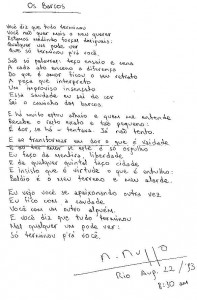 Os Barcos
Você diz que tudo terminou
Você não quer mais o meu querer
Estamos medindo forças desiguais
Qualquer um pode ver
Que só terminou prá você.
São só palavras: teço, ensaio e cena
A cada ato enceno a diferença
Do que é amor ficou o seu retrato
A peça que interpreto
Um improviso insensato
Essa saudade eu sei de cor
Sei o caminho dos barcos
E há muito estou alheio e quem me entende
Recebe o resto exato e tão pequeno:
É dor, se há - tentava. Já não tento.
E ao transformar em dor o que é vaidade
E ao ter amor, se este é só orgulho
Eu faço da mentira, liberdade
E de qualquer quintal faço cidade
E insisto que é virtude o que é entulho:
Baldio é o meu terreno e meu alarde.
Eu vejo você se apaixonando outra vez
Eu fico com a saudade
Você com um outro alguém.
E você diz que tudo terminou
Mas qualquer um pode ver:
Só terminou prá você.
Rio Aug. 12 / 93
8:30 am